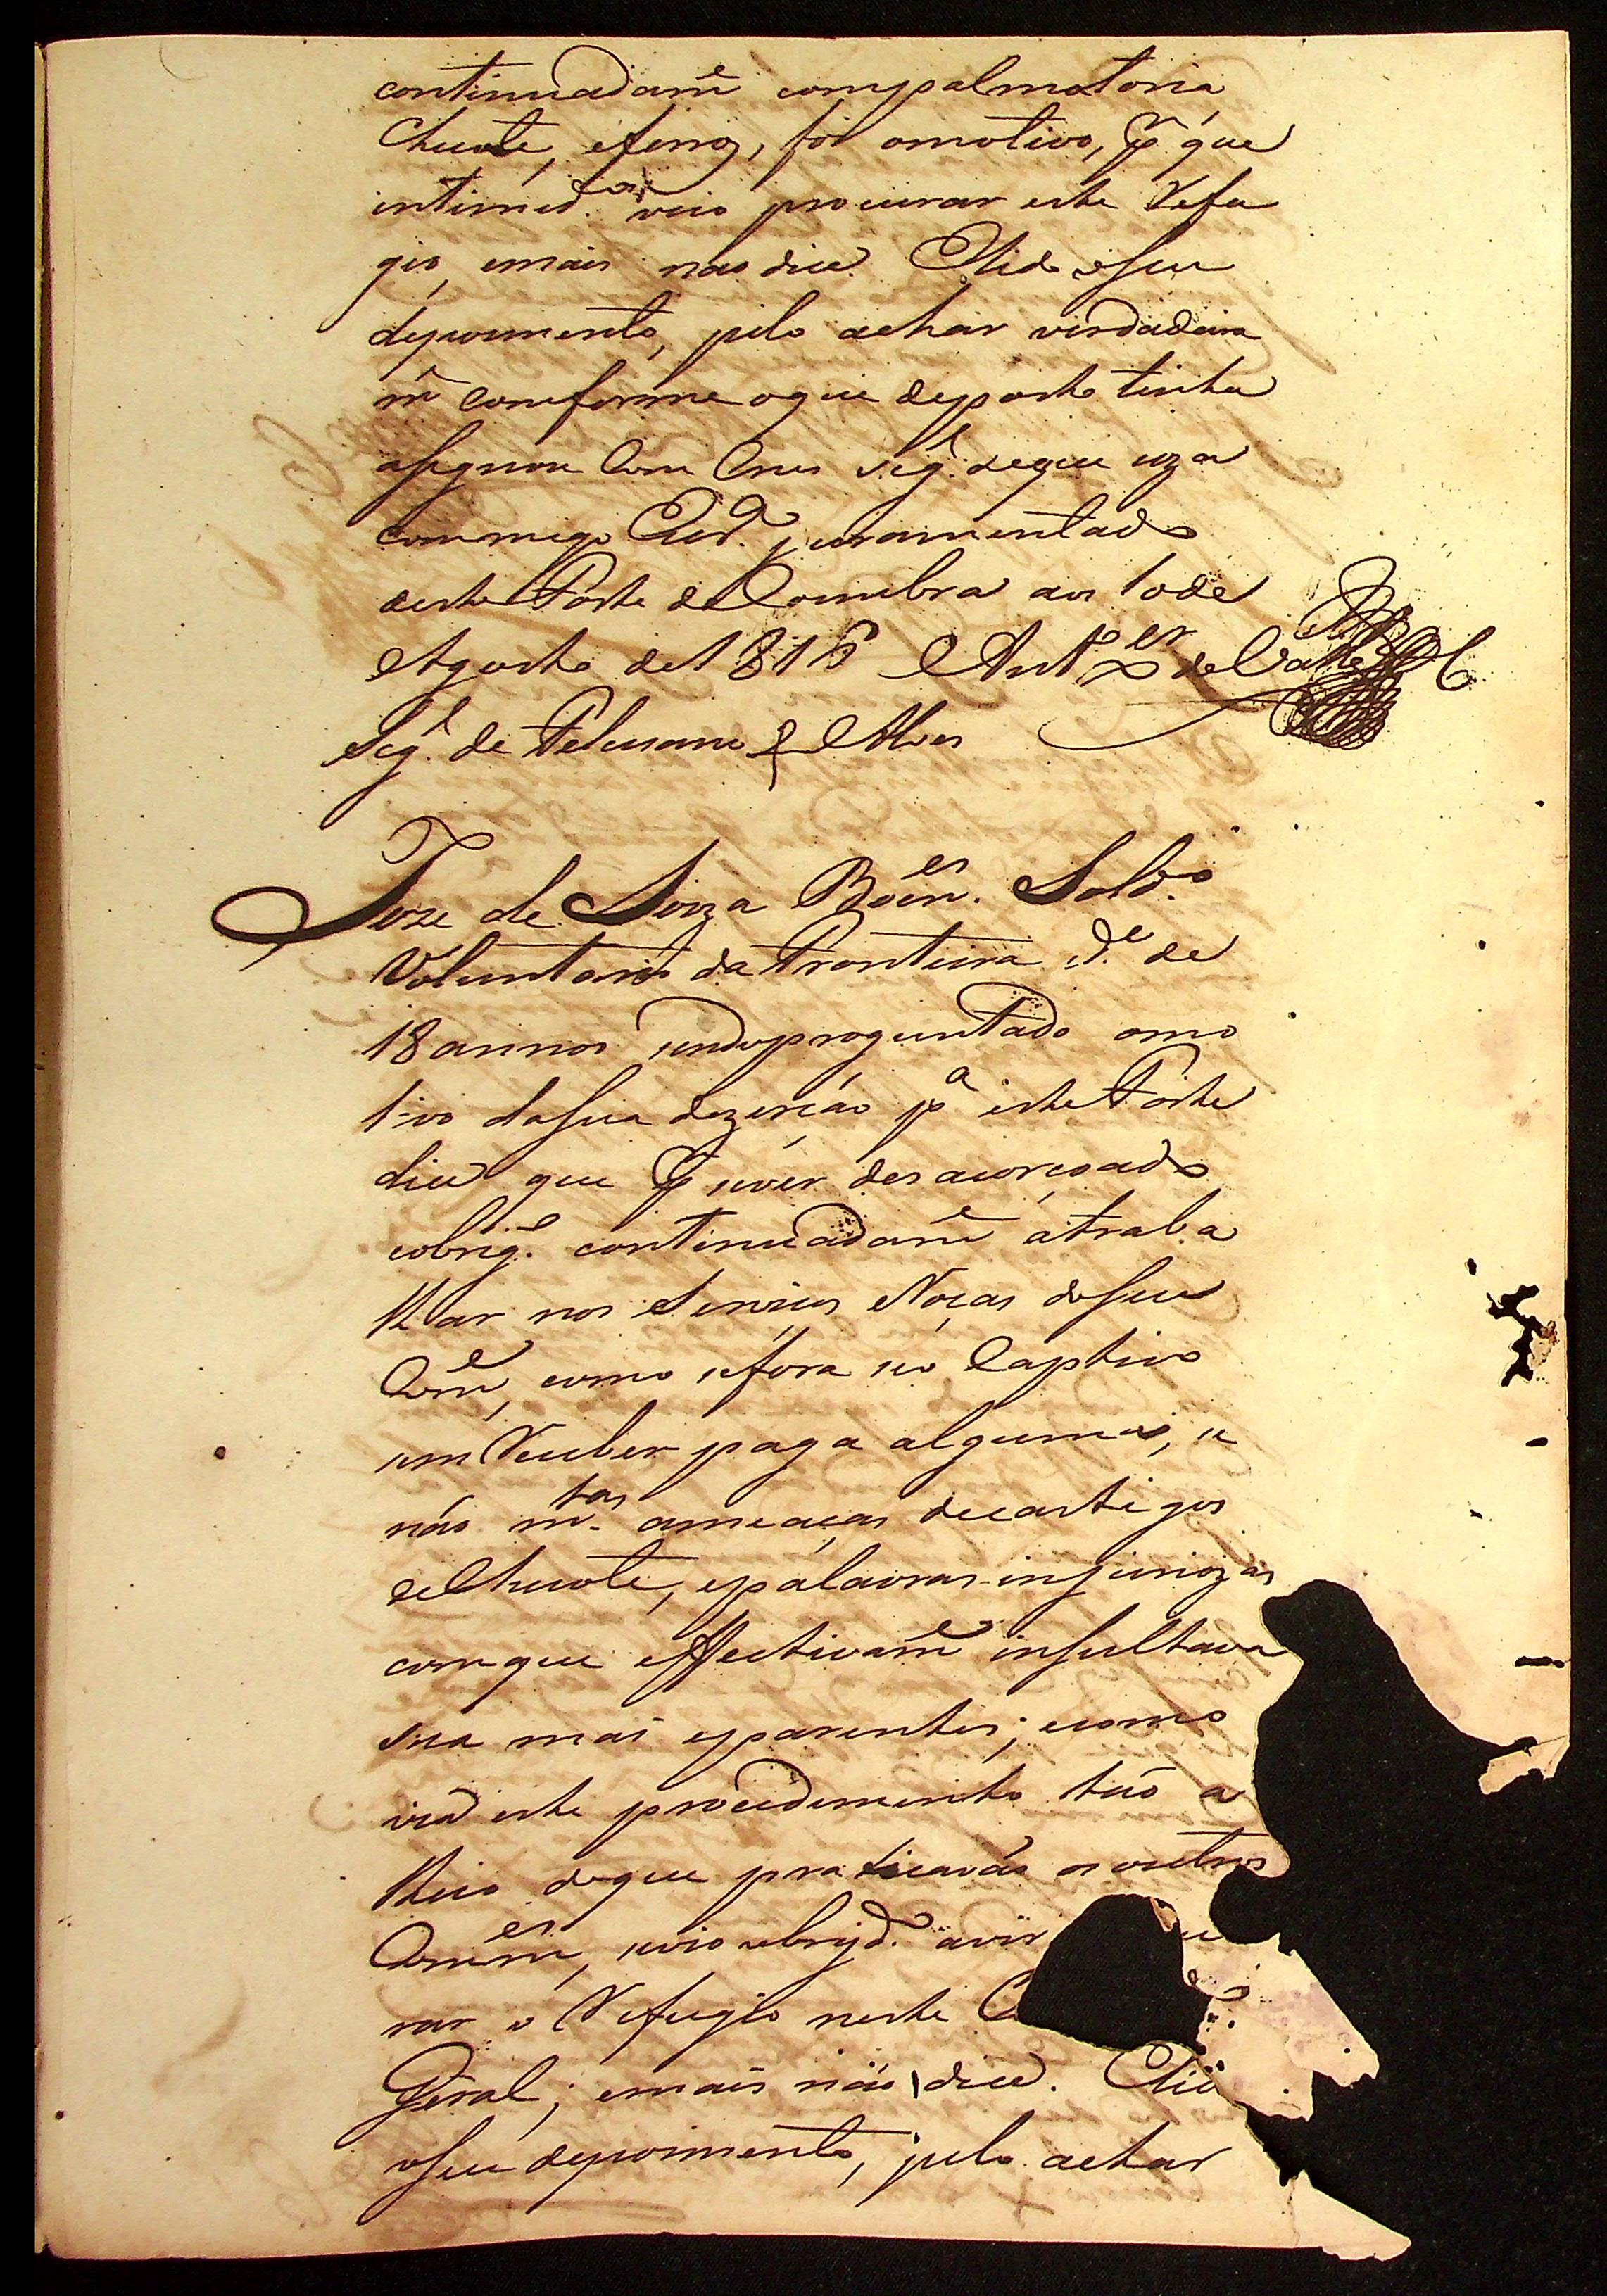 continuadam.e compalmatoria
Chicote, eferros, foi omotivo, p.r que
intimid.os veio procurar este Refu
gio, emais naodice. Elido oseu
depoimento, pelo achar verdadeira
m.e comforme oque deposto tinha
asignou Com Crus sig.l deque uza
commigo Aud.or juramentado
deste Forte deCoimbra aos 10de
Agosto de1816
Sig.l de Alves
Joze de Souza Sold.o
Voluntario da Fronteira id.e de
18annos sendoproguntado omo
tivo dasua dezerção p.a este Forte
dice que p.r viver desacorçoado
eobrig.o continuadam.e atraba
lhar nos Serviços eRoças deseu
Com.e, como sefora seo Captivo
sem Receber paga alguma, se
não m.tas ameaças decastigos
deChicote, epalavras injuriozas
comque effectivam.e insultava
sua mai eparentes; ecomo
via este procedimento tão a
lheio doque praticavão osoutros
Com.es, veio obrigd.o avir
rar o Refugio neste
Geral; emais não dice. Elid
oseu depoimento, pelo achar